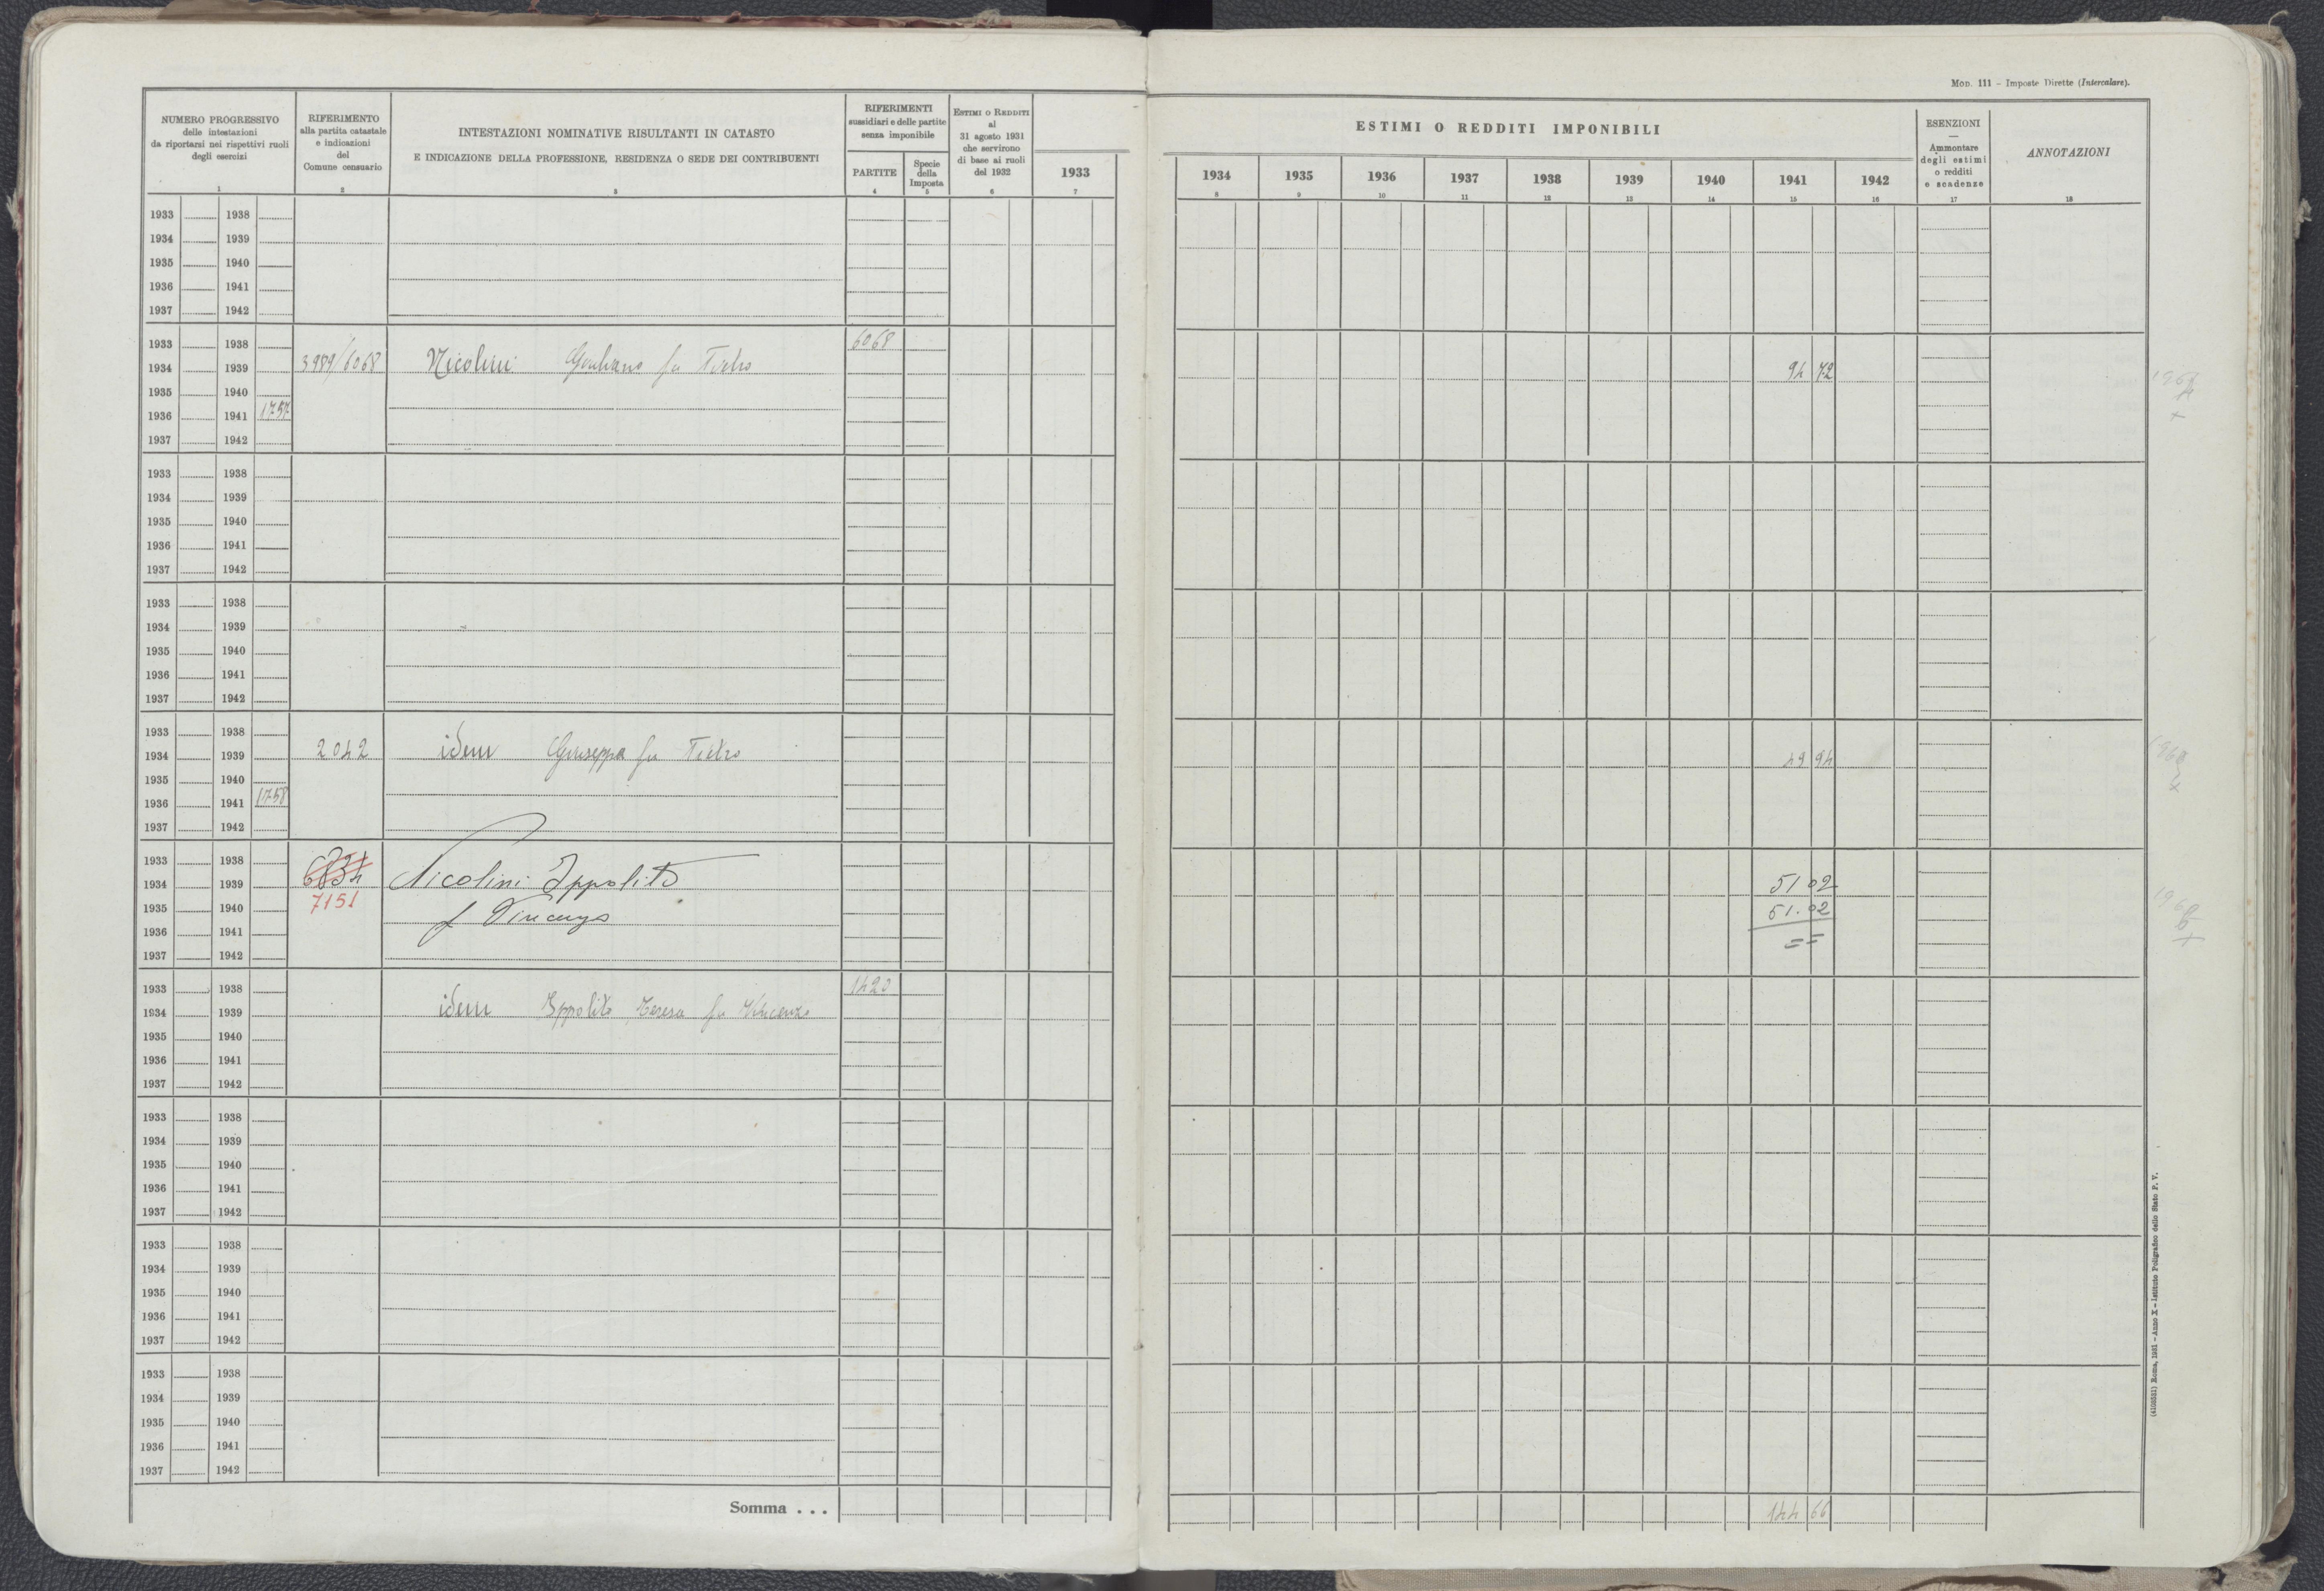 Mod. 111 – Imposte Dirette (Intercalare).
NUMERO PROGRESSIVO
delle intestazioni
da riportarsi nei rispettivi ruoli
degli esercizi
1
RIFERIMENTO
alla partita catastale
e indicazioni
del
Comune censuario
2
INTESTAZIONI NOMINATIVE RISULTANTI IN CATASTO
E INDICAZIONE DELLA PROFESSIONE, RESIDENZA O SEDE DEI CONTRIBUENTI
3
RIFERIMENTI
sussidiari e delle partite
senza imponibile
PARTITE
4
Specie
della
Imposta
5
ESTIMI O REDDITI
al
31 agosto 1931
che servirono
di base ai ruoli
del 1932
6
1933
7
ESTIMI O REDDITI IMPONIBILI
1934 1935 1936 1937 1938 1939 1940 1941 1942
8 9 10 11 12 13 14 15 16
ESENZIONI
—
Ammontare
degli estimi
o redditi
e scadenze
17
ANNOTAZIONI
18
1933 1938
1934 1939
1935 1940
1936 1941
1937 1942
1933 1938 6068
1934 1939 3989/6068 Nicolini Giuliano fu Pietro 94 72
1935 1940
1936 1941 1757
1937 1942
1933 1938
1934 1939
1935 1940
1936 1941
1937 1942
1933 1938
1934 1939
1935 1940
1936 1941
1937 1942
1933 1938
1934 1939 2042 idem Giuseppa fu Pietro 49 94
1935 1940
1936 1941 1758
1937 1942
1933 1938
1934 1939 6834 Nicolini Ippolito 51 02
1935 1940 7151 f Vincenzo 51.02
1936 1941 = =
1937 1942
1933 1938 1420
1934 1939 idem Ippolito Teresa fu Vincenzo
1935 1940
1936 1941
1937 1942
1933 1938
1934 1939
1935 1940
1936 1941
1937 1942
1933 1938
1934 1939
1935 1940
1936 1941
1937 1942
1933 1938
1934 1939
1935 1940
1936 1941
1937 1942
Somma . . . 144 66
(4103531) Roma, 1931 – Anno X – Istituto Poligrafico dello Stato P. V.